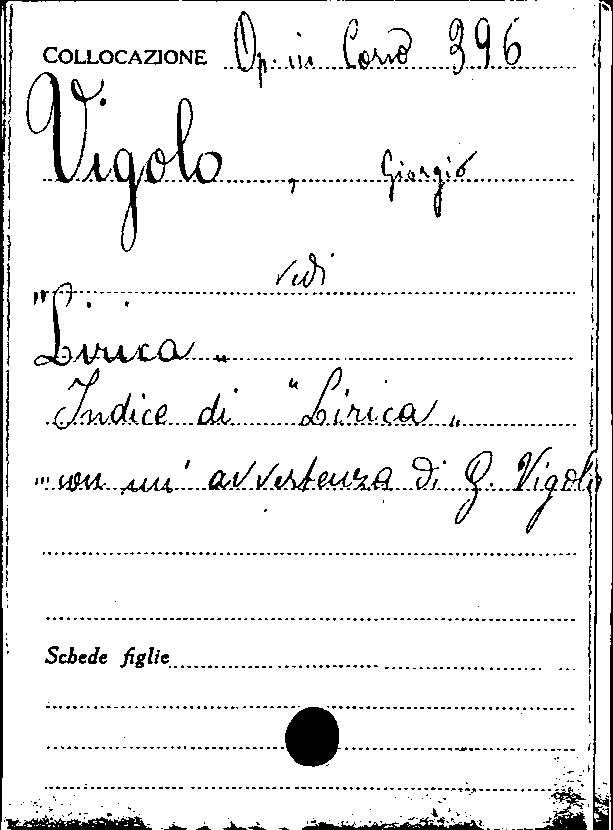 COLLOCAZIONE Op. in Corso 396
Vigolo , Giorgio
vedi
"Lirica„
Indice di "Lirica„
... con un' avvertenza di G. Vigolo
Schede figlie